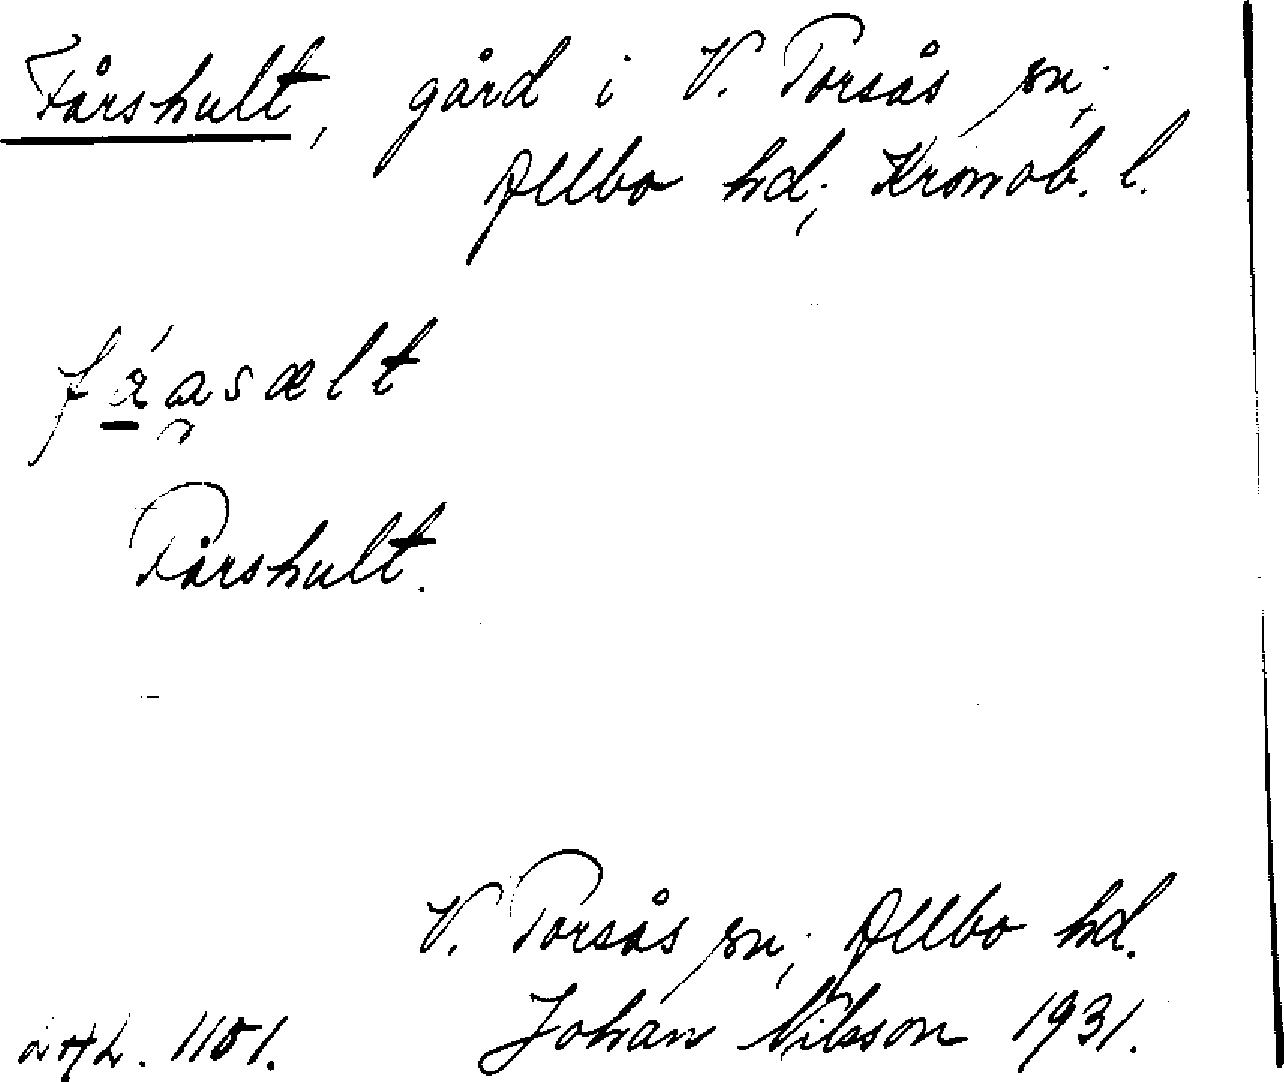 Fårshult, gård i V. Torsås sn,
Allbo hd, Kronob. l.
fåasælt
Fårshult.
V. Torsås sn, Allbo hd.
LAL. 1101. Johan Nilsson 1931.